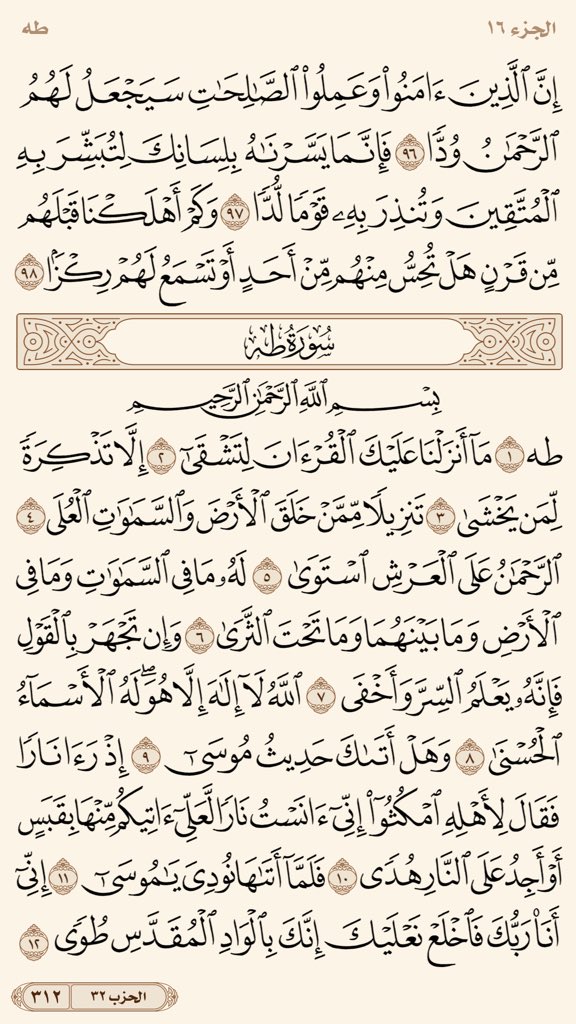 الجزء ١٦ طه
إِنَّ ٱلَّذِينَ ءَامَنُوا۟ وَعَمِلُوا۟ ٱلصَّٰلِحَٰتِ سَيَجْعَلُ لَهُمُ
ٱلرَّحْمَٰنُ وُدًّا ٩٦ فَإِنَّمَا يَسَّرْنَٰهُ بِلِسَانِكَ لِتُبَشِّرَ بِهِ
ٱلْمُتَّقِينَ وَتُنذِرَ بِهِۦ قَوْمًا لُّدًّا ٩٧ وَكَمْ أَهْلَكْنَا قَبْلَهُم
مِّن قَرْنٍ هَلْ تُحِسُّ مِنْهُم مِّنْ أَحَدٍ أَوْ تَسْمَعُ لَهُمْ رِكْزًۢا ٩٨
سُورَةُ طه
بِسْمِ ٱللَّهِ ٱلرَّحْمَٰنِ ٱلرَّحِيمِ
طه ١ مَآ أَنزَلْنَا عَلَيْكَ ٱلْقُرْءَانَ لِتَشْقَىٰٓ ٢ إِلَّا تَذْكِرَةً
لِّمَن يَخْشَىٰ ٣ تَنزِيلًا مِّمَّنْ خَلَقَ ٱلْأَرْضَ وَٱلسَّمَٰوَٰتِ ٱلْعُلَى ٤
ٱلرَّحْمَٰنُ عَلَى ٱلْعَرْشِ ٱسْتَوَىٰ ٥ لَهُۥ مَا فِى ٱلسَّمَٰوَٰتِ وَمَا فِى
ٱلْأَرْضِ وَمَا بَيْنَهُمَا وَمَا تَحْتَ ٱلثَّرَىٰ ٦ وَإِن تَجْهَرْ بِٱلْقَوْلِ
فَإِنَّهُۥ يَعْلَمُ ٱلسِّرَّ وَأَخْفَى ٧ ٱللَّهُ لَآ إِلَٰهَ إِلَّا هُوَۖ لَهُ ٱلْأَسْمَآءُ
ٱلْحُسْنَىٰ ٨ وَهَلْ أَتَىٰكَ حَدِيثُ مُوسَىٰٓ ٩ إِذْ رَءَا نَارًا
فَقَالَ لِأَهْلِهِ ٱمْكُثُوٓا۟ إِنِّىٓ ءَانَسْتُ نَارًا لَّعَلِّىٓ ءَاتِيكُم مِّنْهَا بِقَبَسٍ
أَوْ أَجِدُ عَلَى ٱلنَّارِ هُدًى ١٠ فَلَمَّآ أَتَىٰهَا نُودِىَ يَٰمُوسَىٰٓ ١١ إِنِّىٓ
أَنَا۠ رَبُّكَ فَٱخْلَعْ نَعْلَيْكَ إِنَّكَ بِٱلْوَادِ ٱلْمُقَدَّسِ طُوًى ١٢
الحزب ٣٢ ٣١٢